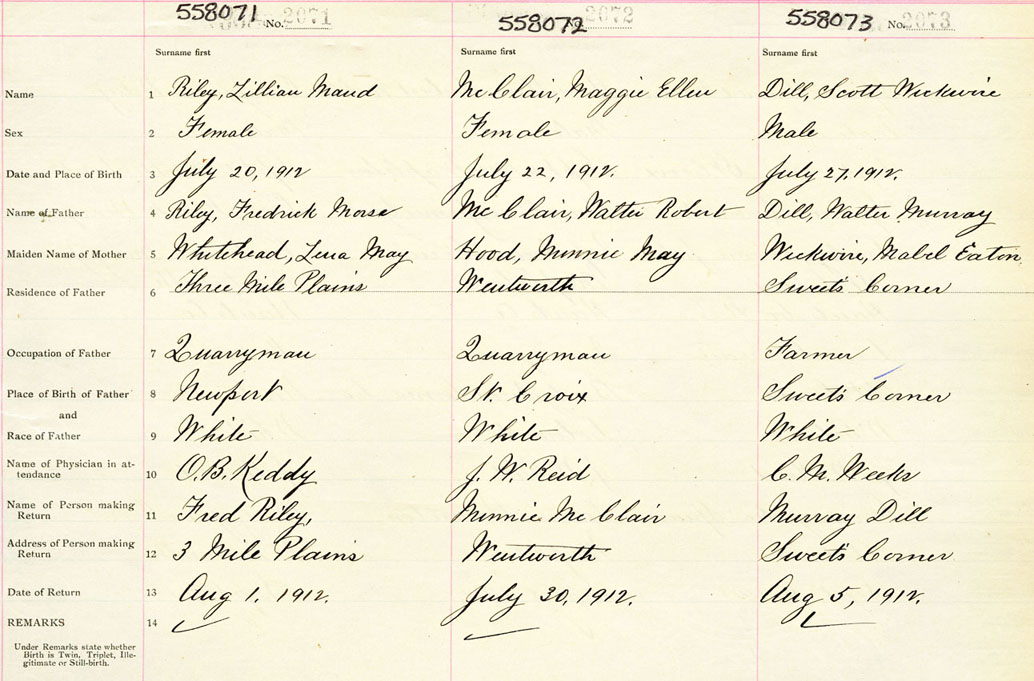 558071 No. 2071 558072 2072 558073 No. 2073
Surname first Surname first Surname first
Name 1 Riley, Lillian Maud McClair, Maggie Ellen Dill, Scott Wickwire
Sex 2 Female Female Male
Date and Place of Birth 3 July 20, 1912 July 22, 1912. July 27, 1912.
Name of Father 4 Riley, Fredrick Morse McClair, Walter Robert Dill, Walter Murray
Maiden Name of Mother 5 Whitehead, Lena May Hood, Minnie May Wickwire, Mabel Eaton
Residence of Father 6 Three Mile Plains Wentworth Sweet's Corner
Occupation of Father 7 Quarryman Quarryman Farmer
Place of Birth of Father 8 Newport St. Croix Sweet's Corner
and
Race of Father 9 White White White
Name of Physician in at-
tendance 10 O.B. Keddy J. W. Reid C. M. Weeks
Name of Person making
Return 11 Fred Riley, Minnie McClair Murray Dill
Address of Person making
Return 12 3 Mile Plains Wentworth Sweet's Corner
Date of Return 13 Aug 1, 1912. July 30, 1912. Aug 5, 1912.
REMARKS 14
Under Remarks state whether
Birth is Twin, Triplet, Ille-
gitimate or Still-birth.